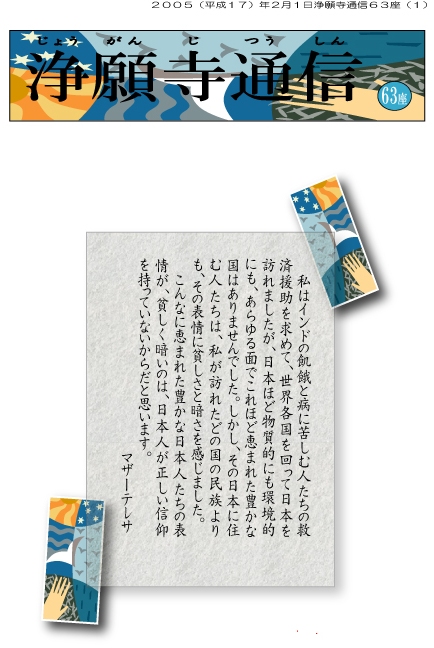 2005（平成17）年2月1日浄願寺通信63座（1）
じょう がん じ つう しん
浄願寺通信
63座
私はインドの飢餓と病に苦しむ人たちの救
済援助を求めて、世界各国を回って日本を
訪れましたが、日本ほど物質的にも環境的
にも、あらゆる面でこれほど恵まれた豊かな
国はありませんでした。しかし、その日本に住
む人たちは、私が訪れたどの国の民族より
も、その表情に貧しさと暗さを感じました。
こんなに恵まれた豊かな日本人たちの表
情が、貧しく暗いのは、日本人が正しい信仰
を持っていないからだと思います。
マザーテレサ